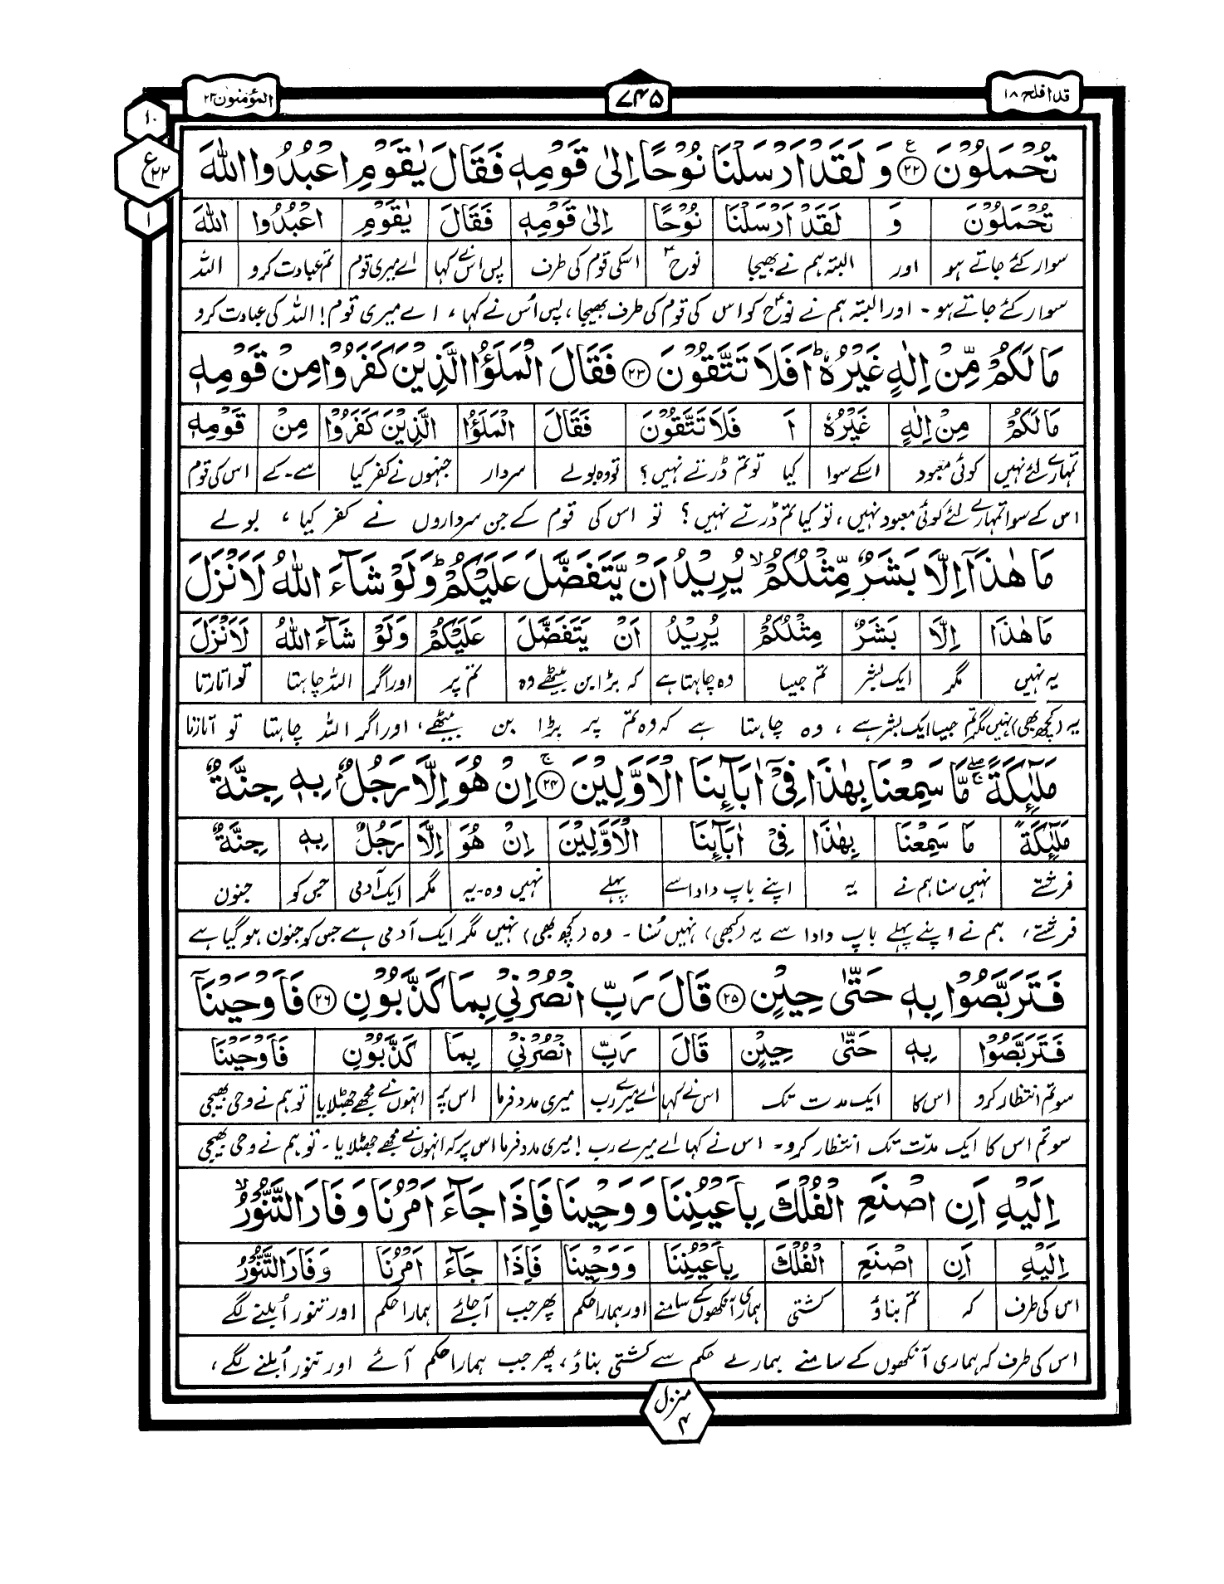 قد افلح ۱۸
۷۴۵
المؤمنون ۲۳
۱۰
ع ۲۲
۱
تُحْمَلُوْنَ ﴿۲۲﴾ۧ وَ لَقَدْ اَرْسَلْنَا نُوْحًا اِلٰى قَوْمِهٖ فَقَالَ يٰقَوْمِ اعْبُدُوا اللّٰهَ
تُحْمَلُوْنَ وَ لَقَدْ اَرْسَلْنَا نُوْحًا اِلٰى قَوْمِهٖ فَقَالَ يٰقَوْمِ اعْبُدُوا اللّٰهَ
سوار کئے جاتے ہو اور البتہ ہم نے بھیجا نوحؑ اسکی قوم کی طرف پس اس نے کہا اے میری قوم تم عبادت کرو اللہ
سوار کئے جاتے ہو۔ اور البتہ ہم نے نوحؑ کو اس کی قوم کی طرف بھیجا، پس اُس نے کہا، اے میری قوم! اللہ کی عبادت کرو
مَا لَكُمْ مِّنْ اِلٰهٍ غَيْرُهٗ ؕ اَفَلَا تَتَّقُوْنَ ﴿۲۳﴾ فَقَالَ الْمَلَؤُا الَّذِيْنَ كَفَرُوْا مِنْ قَوْمِهٖ
مَا لَكُمْ مِنْ اِلٰهٍ غَيْرُهٗ اَ فَلَا تَتَّقُوْنَ فَقَالَ الْمَلَؤُا الَّذِيْنَ كَفَرُوْا مِنْ قَوْمِهٖ
تمہارے لئے نہیں کوئی معبود اسکے سوا کیا تو تم ڈرتے نہیں؟ تو وہ بولے سردار جنہوں نے کفر کیا سے۔کے اس کی قوم
اس کے سوا تمہارے لئے کوئی معبود نہیں، تو کیا تم ڈرتے نہیں؟ تو اس کی قوم کے جن سرداروں نے کفر کیا، بولے
مَا هٰذَاۤ اِلَّا بَشَرٌ مِّثْلُكُمْ ۙ يُرِيْدُ اَنْ يَّتَفَضَّلَ عَلَيْكُمْ ؕ وَلَوْ شَآءَ اللّٰهُ لَاَنْزَلَ
مَا هٰذَا اِلَّا بَشَرٌ مِثْلُكُمْ يُرِيْدُ اَنْ يَتَفَضَّلَ عَلَيْكُمْ وَلَوْ شَآءَ اللّٰهُ لَاَنْزَلَ
یہ نہیں مگر ایک بشر تم جیسا وہ چاہتا ہے کہ بڑا بن بیٹھے وہ تم پر اور اگر اللہ چاہتا تو اتارتا
یہ (کچھ بھی) نہیں مگر تم جیسا ایک بشر ہے، وہ چاہتا ہے کہ وہ تم پر بڑا بن بیٹھے، اور اگر اللہ چاہتا تو اتارتا
مَلٰٓئِكَةً ۖۚ مَّا سَمِعْنَا بِهٰذَا فِيْۤ اٰبَآئِنَا الْاَوَّلِيْنَ ﴿۲۴﴾ۚ اِنْ هُوَ اِلَّا رَجُلٌۢ بِهٖ جِنَّةٌ
مَلٰٓئِكَةً مَا سَمِعْنَا بِهٰذَا فِيْۤ اٰبَآئِنَا الْاَوَّلِيْنَ اِنْ هُوَ اِلَّا رَجُلٌ بِهٖ جِنَّةٌ
فرشتے نہیں سنا ہم نے یہ اپنے باپ دادا سے پہلے نہیں وہ۔یہ مگر ایک آدمی جس کو جنون
فرشتے، ہم نے اپنے پہلے باپ دادا سے یہ (کبھی) نہیں سُنا۔ وہ (کچھ بھی) نہیں مگر ایک آدمی ہے جس کو جنون ہو گیا ہے
فَتَرَبَّصُوْا بِهٖ حَتّٰى حِيْنٍ ﴿۲۵﴾ قَالَ رَبِّ انْصُرْنِيْ بِمَا كَذَّبُوْنِ ﴿۲۶﴾ فَاَوْحَيْنَاۤ
فَتَرَبَّصُوْا بِهٖ حَتّٰى حِيْنٍ قَالَ رَبِّ انْصُرْنِيْ بِمَا كَذَّبُوْنِ فَاَوْحَيْنَا
سو تم انتظار کرو اس کا ایک مدت تک اس نے کہا اے میرے رب میری مدد فرما اس پر انہوں نے مجھے جھٹلایا تو ہم نے وحی بھیجی
سو تم اس کا ایک مدّت تک انتظار کرو۔ اس نے کہا اے میرے رب! میری مدد فرما اس پر کہ انہوں نے مجھے جھٹلایا۔ تو ہم نے وحی بھیجی
اِلَيْهِ اَنِ اصْنَعِ الْفُلْكَ بِاَعْيُنِنَا وَوَحْيِنَا فَاِذَا جَآءَ اَمْرُنَا وَفَارَ التَّنُّوْرُ ۙ
اِلَيْهِ اَنِ اصْنَعِ الْفُلْكَ بِاَعْيُنِنَا وَوَحْيِنَا فَاِذَا جَآءَ اَمْرُنَا وَفَارَ التَّنُّوْرُ
اس کی طرف کہ تم بناؤ کشتی ہماری آنکھوں کے سامنے اور ہمارا حکم پھر جب آجائے ہمارا حکم اور تنور اُبلنے لگے
اس کی طرف کہ ہماری آنکھوں کے سامنے ہمارے حکم سے کشتی بناؤ، پھر جب ہمارا حکم آئے اور تنور اُبلنے لگے،
منزل ۴